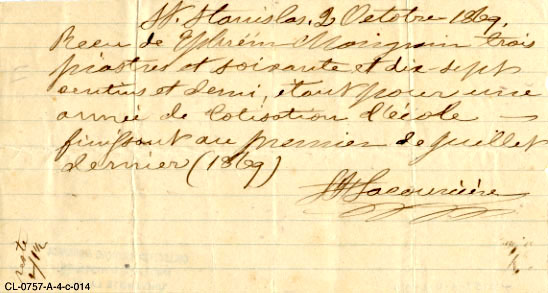 St. Stanislas, 2 Octobre 1869.
Recu de Ephrem Mongrain trois
piastres et soixante et dix-sept
centins et demi, étant pour une
année de Cotisation d'école
finissant au premier de Juillet
dernier (1869)
Lacoursière
reste
CL-0757-A-4-c-014